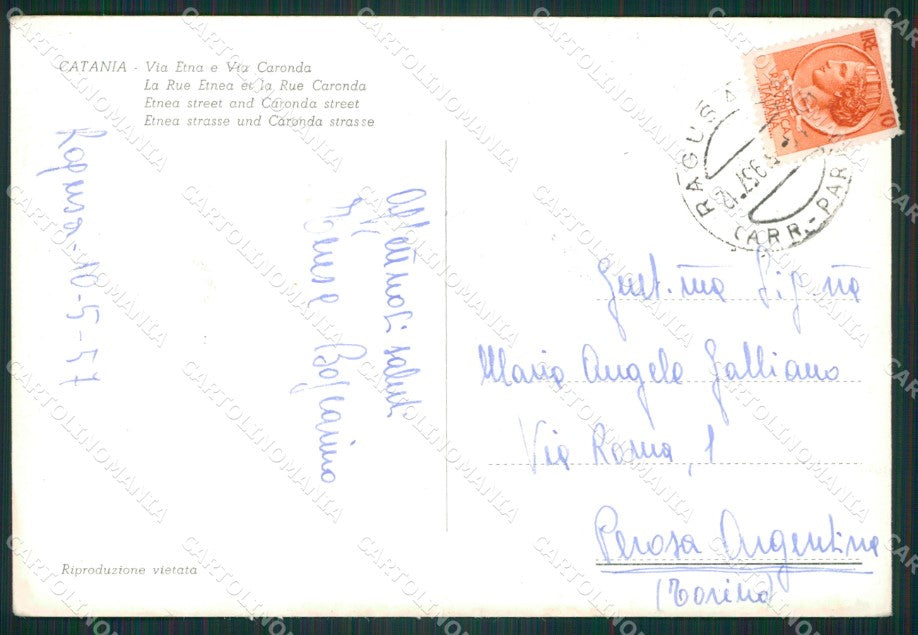 CATANIA - Via Etna e Via Caronda
La Rue Etnea et la Rue Caronda
Etnea street and Caronda street
Etnea strasse und Caronda strasse
Ragusa - 10-5-57
Affettuosi saluti
LIRE 10
RAGUSA
ARR.-PAR
Gent.ma Sig.na
Maria Angela Galliano
Via Roma, 1
Perosa Argentina
(Torino)
Riproduzione vietata
CARTOLINOMANIA